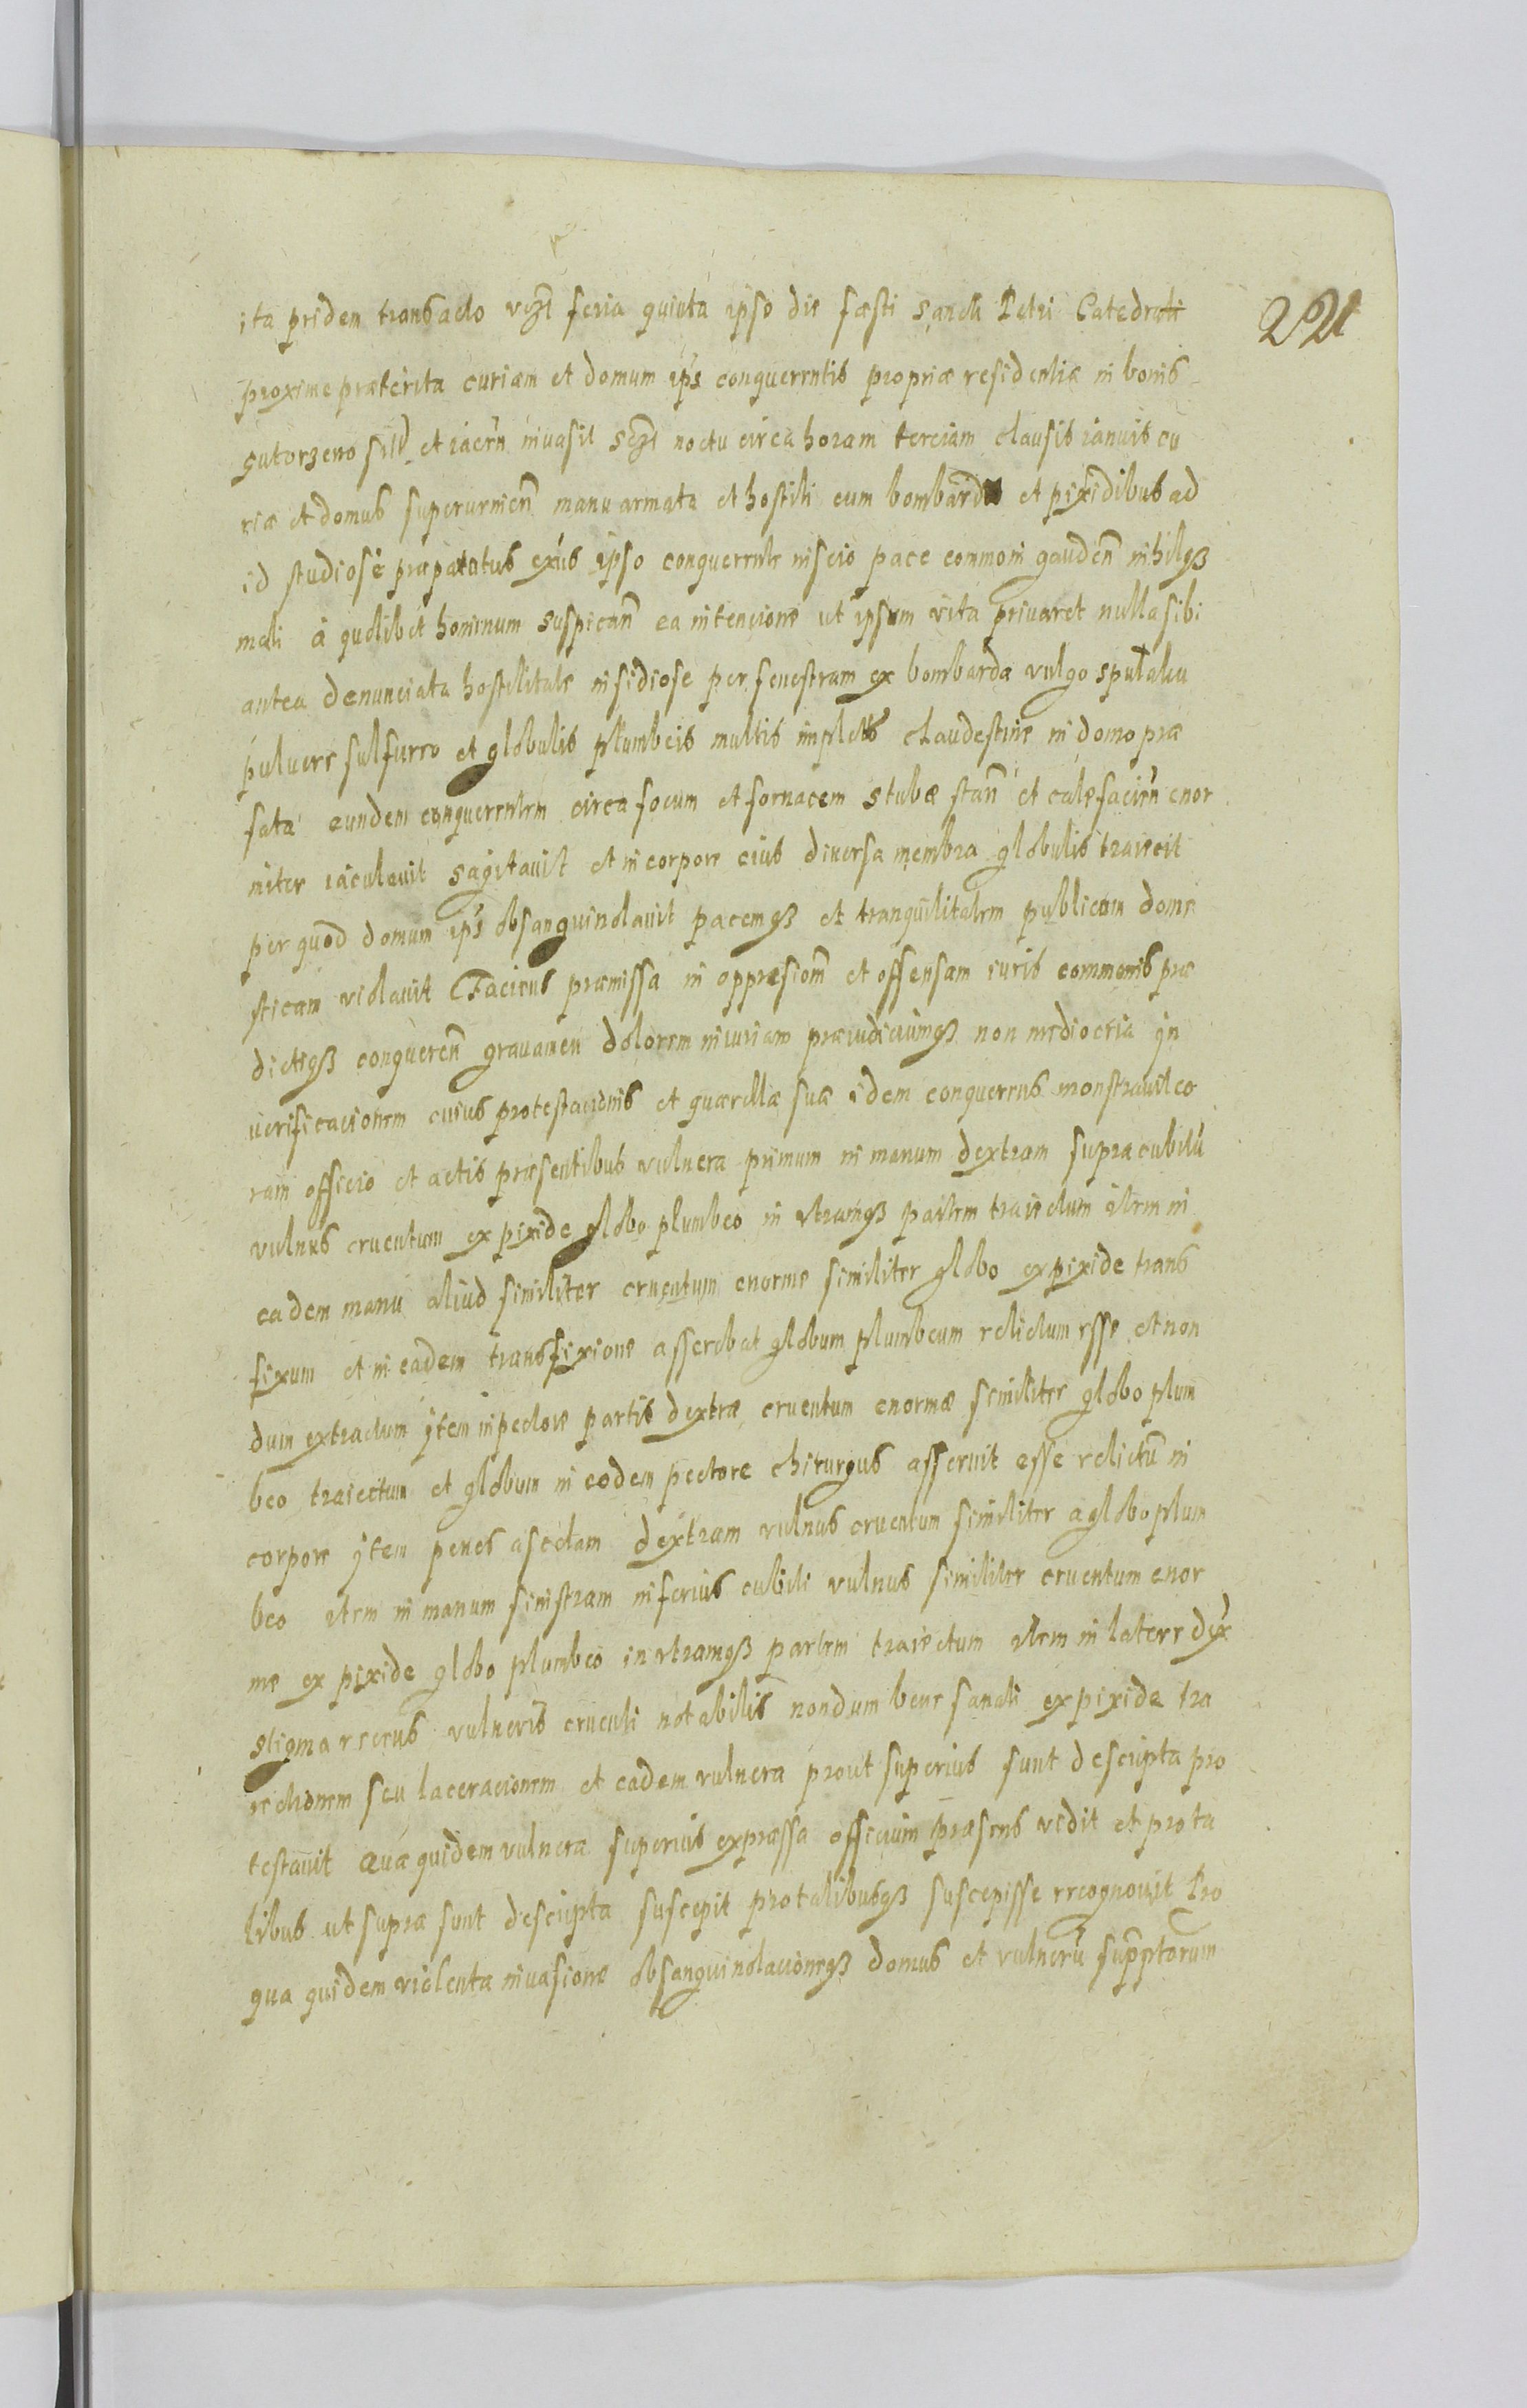 ita pridem transacto vcz feria quinta ipso die faesti Sancti Petri Catedrati
221
proxime praeterita curiam et domum ips conquerentis propriae residentiae in bonis
Gutorzeno sitt et iacen invasit scz noctu circa horam terciam clausis ianuis cu
riae et domus superurnien manu armata et hostili cum bombardis et pixidibus ad
id studiose praeparatus exiis ipso conquerente inscio pace commoni gauden nihilqз
mali a quolibet hominum suspican ea intencione ut ipsum vita privaret nulla sibi
antea denunciata hostilitate insidiose per fenestram ex bombarda vulgo spulaku
pulvere sulfureo et globulis plumbeis multis impletis clandestine in domo prae
fata eundem conquerentem circa focum et fornacem stubae stan et calefacien enor
miter iaculavit sagitavit et in corpore eius diversa membra globulis traiecit
per quod domum ips obsanguinolavit pacemqз et tranquilitatem publicam dome
sticam violavit Faciens praemissa in oppraesionem et offensam iuris commonis prae
dictiqз conqueren gravamen dolorem iniuriam praeiudiciumqз non mediocria In
verificacionem cuius protestacionis et quaerellae suae idem conquerens monstravit co
ram officio et actis praesentibus vulnera primum in manum dextram supra cubitu
vulnus cruentum ex pixide globo plumbeo in utramqз partem traiectum item in
eadem manu aliud similiter cruentum enorme similiter globo ex pixide trans
fixum et in eadem transfixione asserebat globum plumbeum relictum esse et non
dum extractum Item in pectore partis dextrae cruentum enormae similiter globo plum
beo traiectum et globum in eodem pectore chirurgus asseruit esse relictu in
corpore Item penes ascelam dextram vulnus cruentum similiter a globo plum
beo item in manum sinistram inferius cubiti vulnus similiter cruentum enor
me ex pixide globo plumbeo in utramqз partem traiectum item in latere dex
stigma recens vulneris cruenti notabilis nondum bene sanati ex pixide tra
iectionem seu laceracionem et eadem vulnera prout superius sunt descripta pro
testavit Quae quidem vulnera superius expraessa officium praesens vidit et pro ta
libus ut supra sunt descripta suscepit pro talibusqз suscepisse recognovit Pro
qua quidem violenta invasione obsanguinolacioneqз domus et vulneru supptorum